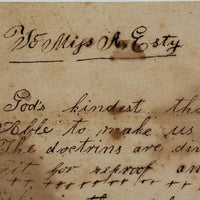 To Miss A. Esty
Gods kindest tho
Able to make us
The doctrins are div
it for reproof an